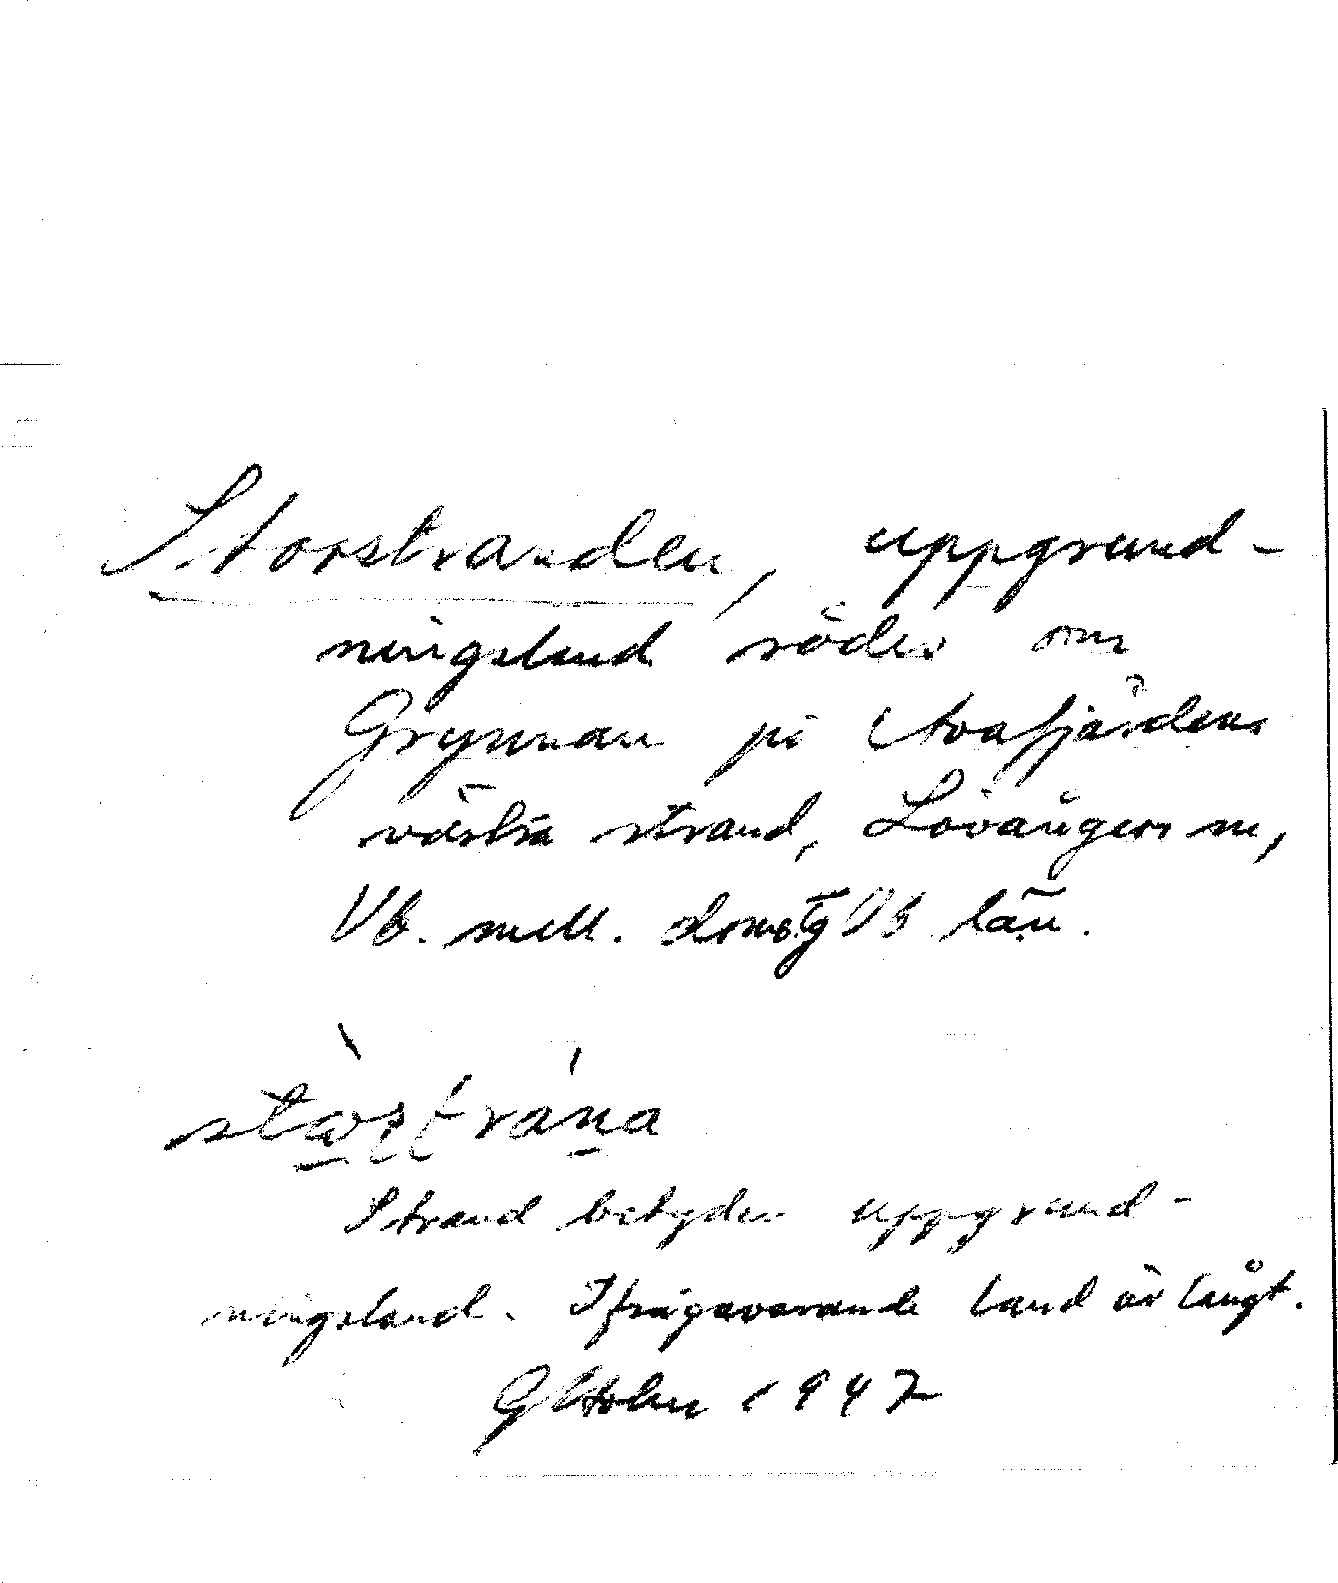 Storstranden, uppgrund-
ningsland söder om
Grynnan på Avafjärdens
västra strand, Lövångers sn,
Vb. mell. domsg Vb län.
Strand betyder uppgrund-
ningsland. Ifrågavarande land är långt.
G Holm 1947